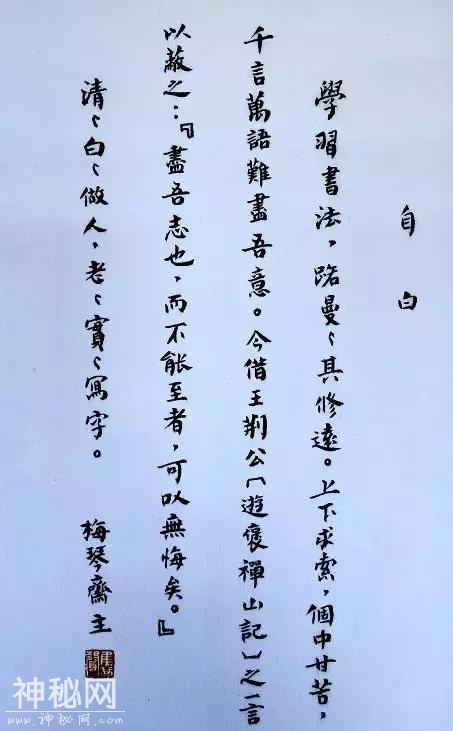 自白
學習書法，路曼丶其修遠。上下求索，個中甘苦，
千言萬語難盡吾意。今借王荆公《遊褒禪山記》之一言
以蔽之：『盡吾志也，而不能至者，可以無悔矣。』
清丶白丶做人，老丶實丶寫字。
梅琴齋主
神秘网
www.shenmw.com